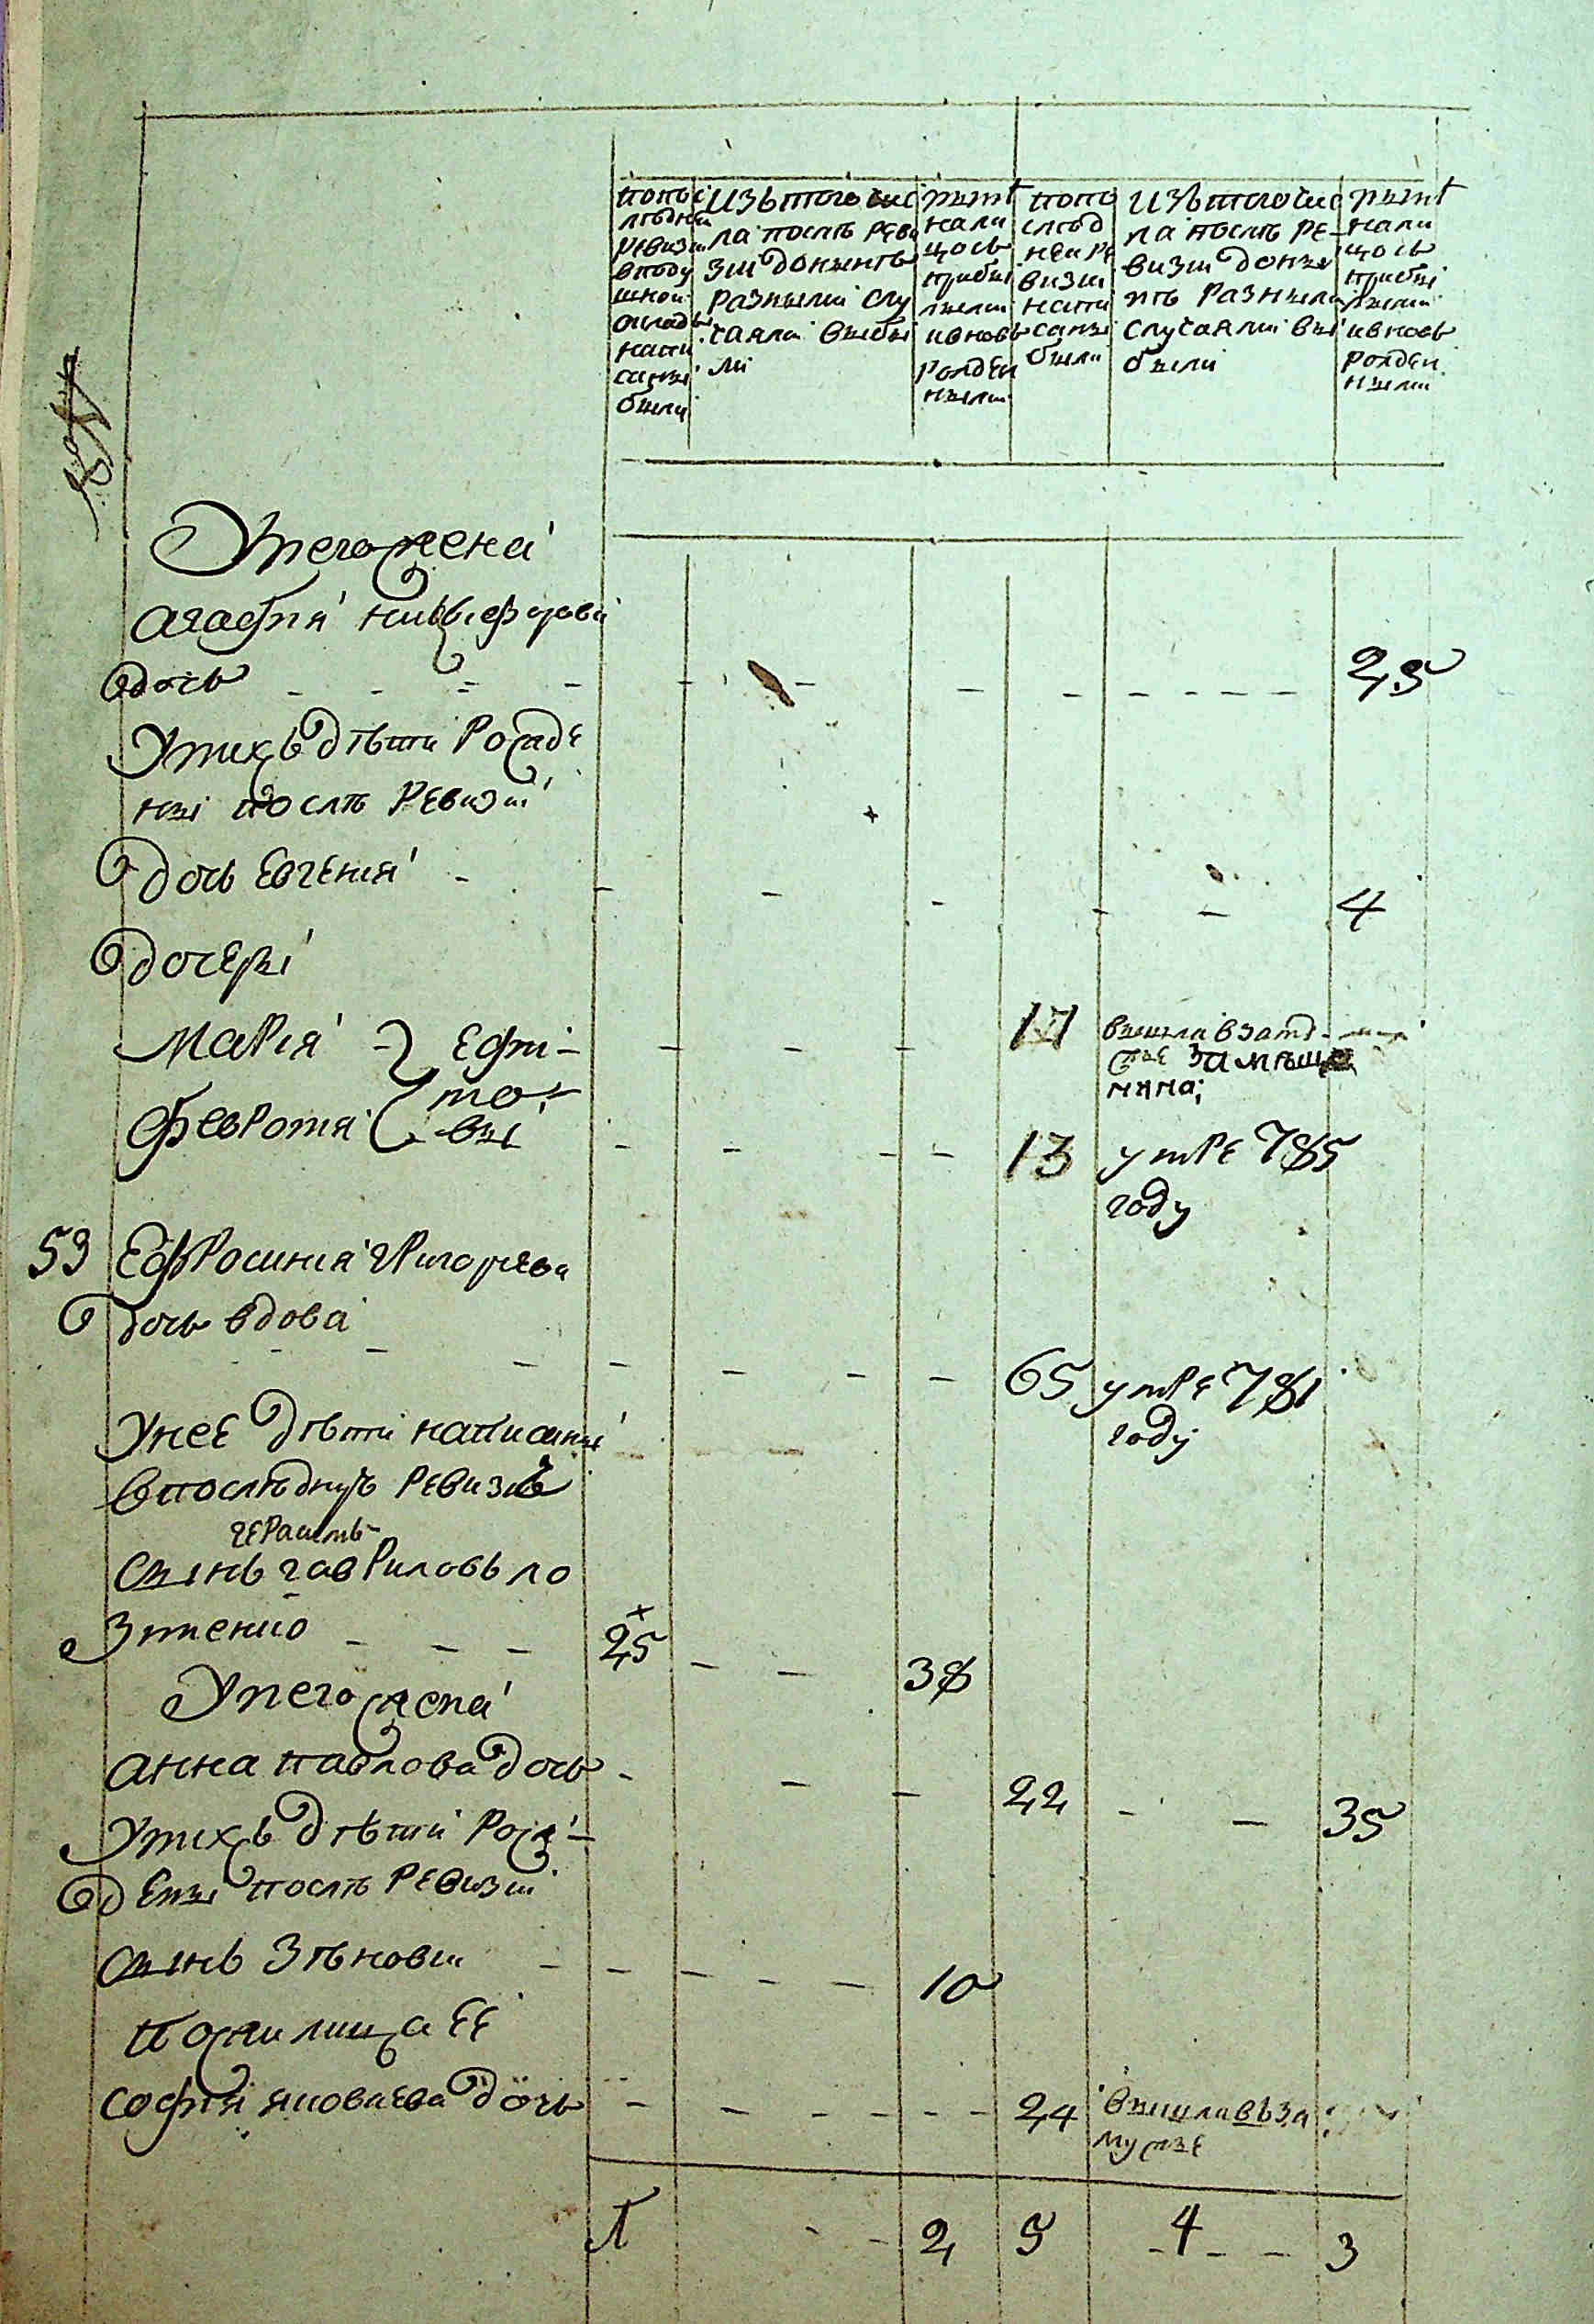 попос
лѣдней
ревизи
вподу
шном
окладѣ
напи
саны
были
изътого чис
ла послѣ реви
зии донынѣ
разными слу
чаями выбы
ли
нынѣ
нали
цось
прибы
лыми
ивновь
рожден
ными
попо
слѣд
ней ре
визии
напи
саны
были
изътого чис
ла послѣ ре-
визии доны
нѣ разными
случаями вы
были
нынѣ
нали
цось
прибы
лыми
ивновь
рожден
ными
Унего жена
агафия никифорова
дочь - - - - 25
Унихъ дѣти рожде
ны послѣ ревизии
дочь Евгения - - - - - - 4
дочеры
Мария } Ефи- - - - 17 вышла взаму
жъе замѣща
нина;
Феврония } мо-
вы - - - - 13 умре 785
году
53 Ефросиния Григорьева
дочь вдова - - - - - - - 65 умре 781
году
Унее дѣти написаны
впослѣднуѣ ревизиѣ
герасимъ
сынъ гавриловъ ло
зтенко - - - 25 - - 38
Унего жена
анна павлова дочь - - - 22 - - 35
Унихъ дѣти рож-
дены послѣ ревизии
сынъ Зѣновии - - - - - 10
Пожилица ее
софия яковлева дочь - - - - - - 24 вышла въза
мужъе
1 - - 2 5 4 - - 3